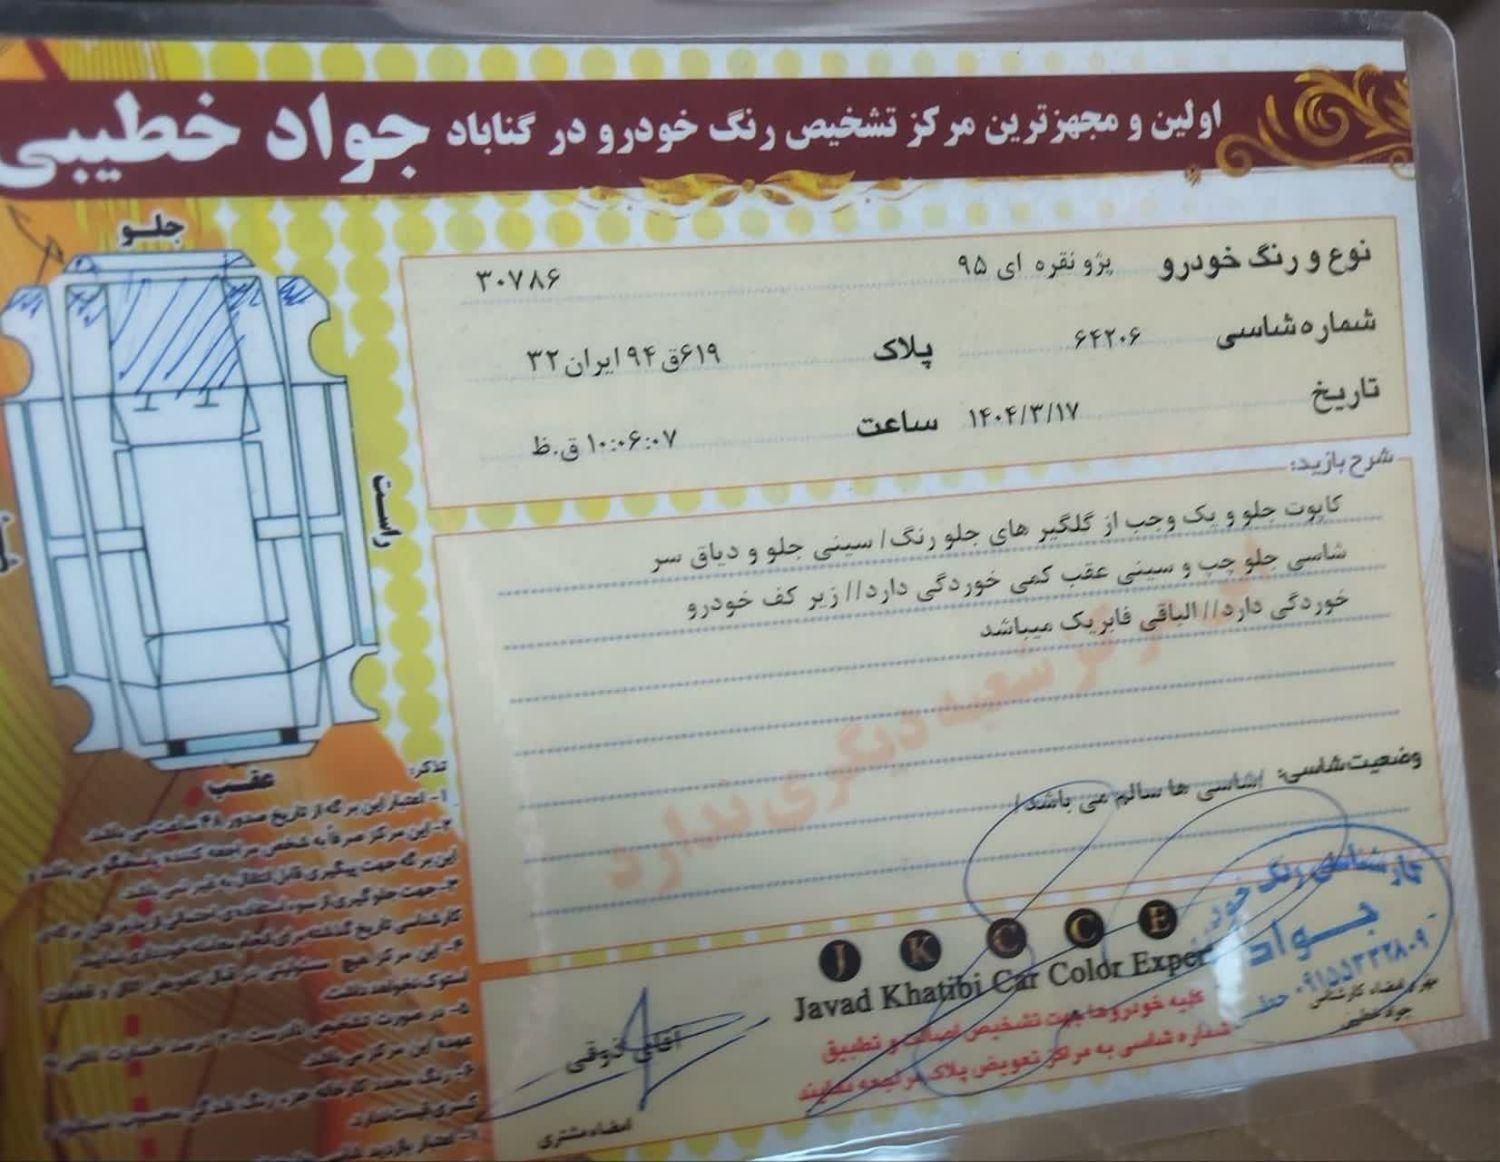 اولین و مجهزترین مرکز تشخیص رنگ خودرو در گناباد جواد خطیبی
جلو
نوع و رنگ خودرو پژو نقره ای ۹۵ ۳۰۷۸۶
شماره شاسی ۶۴۲۰۶ پلاک ۶۱۹ق۹۴ ایران ۳۲
تاریخ ۱۴۰۴/۳/۱۷ ساعت ۱۰:۰۶:۰۷ ق.ظ
راست
شرح بازید:
کاپوت جلو و یک وجب از گلگیر های جلو رنگ/ سینی جلو و دیاق سر
شاسی جلو چپ و سینی عقب کمی خوردگی دارد// زیر کف خودرو
خوردگی دارد// الباقی فابریک میباشد
مرکز شعبه دیگری ندارد
وضعیت شاسی: /شاسی ها سالم می باشد/
عقب
تذکر:
۱- اعتبار این برگه از تاریخ صدور ۴۸ ساعت می باشد.
۲- این مرکز صرفاً به شخص مراجعه کننده پاسخگو می باشد و
این برگه جهت پیگیری قابل انتقال به غیر نمی باشد.
۳- جهت جلوگیری از سوء استفاده ی احتمالی از پذیرفتن برگه ی
کارشناسی تاریخ گذشته برای انجام معامله خودداری نمایید.
۴- این مرکز هیچ مسئولیتی در قبال تعویض اتاق و قطعات
استوک نخواهد داشت.
۵- در صورت تشخیص نادرست ۲۰ درصد خسارت
عهده این مرکز می باشد.
J K C C E
Javad Khatibi Car Color Exper
کلیه خودروها جهت تشخیص اصالت و تطبیق
شماره شاسی به مراکز تعویض پلاک مراجعه نمایند
کارشناسی رنگ خودرو
جواد
۰۹۱۵۵۳۳۲۸۰۹
مهر و امضاء کارشناس
جواد خطیبی
آقای ذوقی
امضاء مشتری